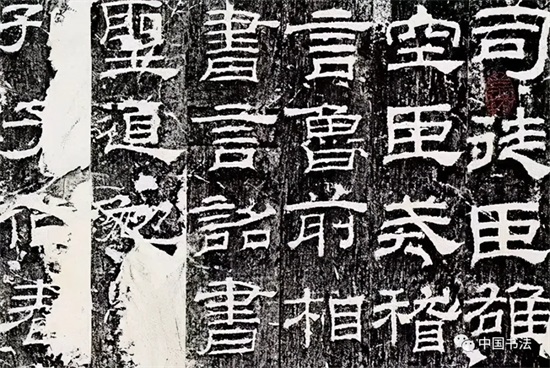 司徒臣雄
空臣戒稽
言魯前相
書言詔書
聖道勉
孔子作春
中国书法